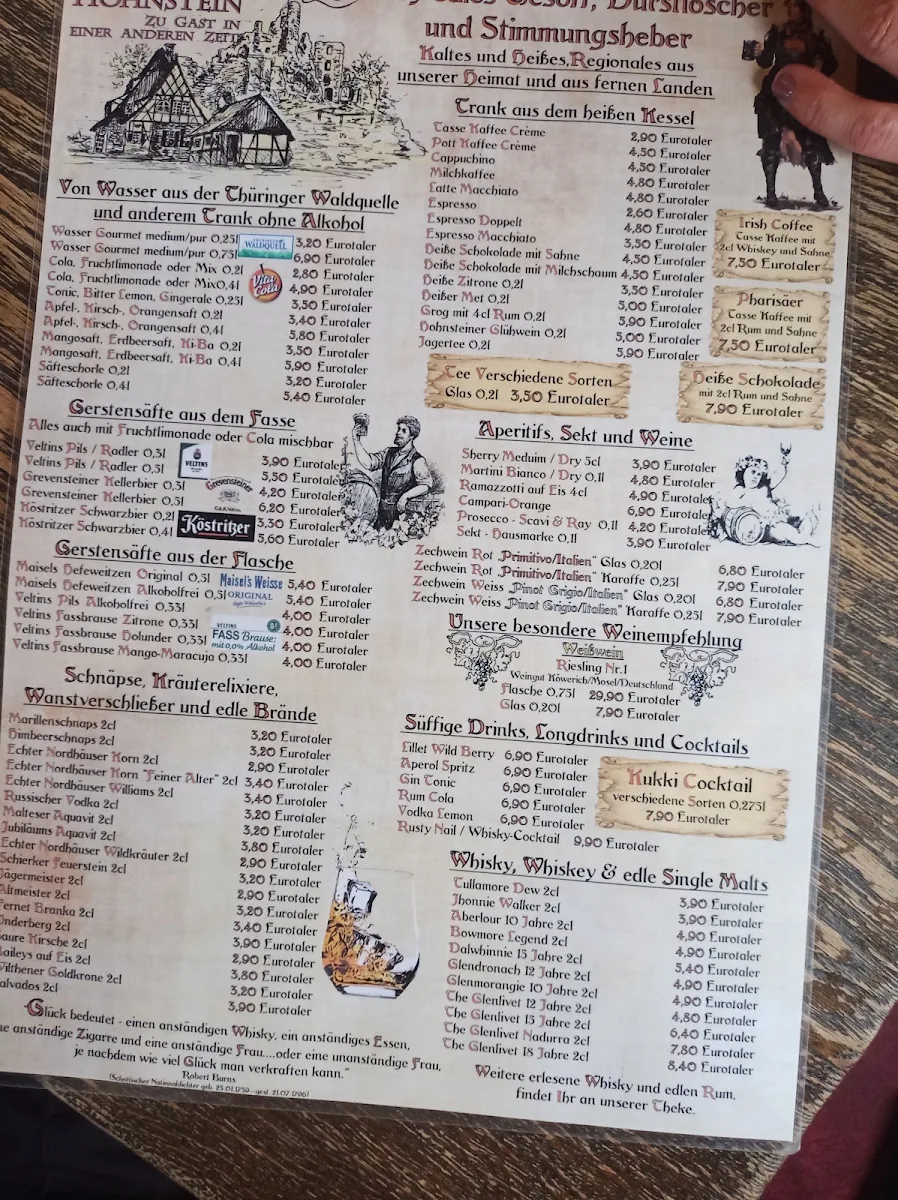 HOHNSTEIN
ZU GAST IN
EINER ANDEREN ZEIT
und Stimmungsheber
Kaltes und Heißes, Regionales aus
unserer Heimat und aus fernen Landen
Von Wasser aus der Thüringer Waldquelle
und anderem Trank ohne Alkohol
Wasser Gourmet medium/pur 0,25l 3,20 Eurotaler
Wasser Gourmet medium/pur 0,75l 6,90 Eurotaler
Cola, Fruchtlimonade oder Mix 0,2l 2,80 Eurotaler
Cola, Fruchtlimonade oder Mix0,4l 4,90 Eurotaler
Tonic, Bitter Lemon, Gingerale 0,25l 3,50 Eurotaler
Apfel-, Kirsch-, Orangensaft 0,2l 3,40 Eurotaler
Apfel-, Kirsch-, Orangensaft 0,4l 5,80 Eurotaler
Mangosaft, Erdbeersaft, Ki-Ba 0,2l 3,50 Eurotaler
Mangosaft, Erdbeersaft, Ki-Ba 0,4l 5,90 Eurotaler
Säfteschorle 0,2l 3,20 Eurotaler
Säfteschorle 0,4l 5,40 Eurotaler
WALDQUELL
Vita Cola
Gerstensäfte aus dem Fasse
Alles auch mit Fruchtlimonade oder Cola mischbar
Veltins Pils / Radler 0,3l 3,90 Eurotaler
Veltins Pils / Radler 0,5l 5,50 Eurotaler
Grevensteiner Kellerbier 0,3l 4,20 Eurotaler
Grevensteiner Kellerbier 0,5l 6,20 Eurotaler
Köstritzer Schwarzbier 0,2l 3,30 Eurotaler
Köstritzer Schwarzbier 0,4l 5,60 Eurotaler
VELTINS
Grevensteiner
Köstritzer
Gerstensäfte aus der Flasche
Maisels Hefeweitzen Original 0,5l 5,40 Eurotaler
Maisels Hefeweitzen Alkoholfrei 0,5l 5,40 Eurotaler
Veltins Pils Alkoholfrei 0,33l 4,00 Eurotaler
Veltins Fassbrause Zitrone 0,33l 4,00 Eurotaler
Veltins Fassbrause Holunder 0,33l 4,00 Eurotaler
Veltins Fassbrause Mango-Maracuja 0,33l 4,00 Eurotaler
Maisel's Weisse
ORIGINAL
VELTINS
FASS Brause:
mit 0,0% Alkohol
Schnäpse, Kräuterelixiere,
Wanstverschließer und edle Brände
Marillenschnaps 2cl 3,20 Eurotaler
Himbeerschnaps 2cl 3,20 Eurotaler
Echter Nordhäuser Korn 2cl 2,90 Eurotaler
Echter Nordhäuser Korn "Feiner Alter" 2cl 3,40 Eurotaler
Echter Nordhäuser Williams 2cl 3,40 Eurotaler
Russischer Vodka 2cl 3,20 Eurotaler
Malteser Aquavit 2cl 3,20 Eurotaler
Jubiläums Aquavit 2cl 3,80 Eurotaler
Echter Nordhäuser Wildkräuter 2cl 2,90 Eurotaler
Schierker Feuerstein 2cl 3,20 Eurotaler
Jägermeister 2cl 2,90 Eurotaler
Altmeister 2cl 3,20 Eurotaler
Fernet Branka 2cl 3,40 Eurotaler
Underberg 2cl 3,90 Eurotaler
aure Kirsche 2cl 2,90 Eurotaler
aileys auf Eis 2cl 3,80 Eurotaler
Wilthener Goldkrone 2cl 3,20 Eurotaler
alvados 2cl 3,90 Eurotaler
Glück bedeutet - einen anständigen Whisky, ein anständiges Essen,
ne anständige Zigarre und eine anständige Frau....oder eine unanständige Frau,
je nachdem wie viel Glück man verkraften kann."
Robert Burns
(Schottischer Nationaldichter geb. 25.01.1759 -gest. 21.07.1796)
Trank aus dem heißen Kessel
Tasse Kaffee Crème 2,90 Eurotaler
Pott Kaffee Crème 4,50 Eurotaler
Cappuchino 4,50 Eurotaler
Milchkaffee 4,80 Eurotaler
Latte Macchiato 4,80 Eurotaler
Espresso 2,60 Eurotaler
Espresso Doppelt 4,80 Eurotaler
Espresso Macchiato 3,50 Eurotaler
Heiße Schokolade mit Sahne 4,50 Eurotaler
Heiße Schokolade mit Milchschaum 4,50 Eurotaler
Heiße Zitrone 0,2l 3,50 Eurotaler
Heißer Met 0,2l 5,00 Eurotaler
Grog mit 4cl Rum 0,2l 5,90 Eurotaler
Hohnsteiner Glühwein 0,2l 5,00 Eurotaler
Jagertee 0,2l 5,90 Eurotaler
Irish Coffee
Tasse Kaffee mit
2cl Whiskey und Sahne
7,50 Eurotaler
Pharisäer
Tasse Kaffee mit
2cl Rum und Sahne
7,50 Eurotaler
Tee Verschiedene Sorten
Glas 0,2l 3,50 Eurotaler
Heiße Schokolade
mit 2cl Rum und Sahne
7,90 Eurotaler
Aperitifs, Sekt und Weine
Sherry Meduim / Dry 5cl 3,90 Eurotaler
Martini Bianco / Dry 0,1l 4,80 Eurotaler
Ramazzotti auf Eis 4cl 4,90 Eurotaler
Campari-Orange 6,90 Eurotaler
Prosecco - Scavi & Ray 0,1l 4,20 Eurotaler
Sekt - Hausmarke 0,1l 3,90 Eurotaler
Zechwein Rot „Primitivo/Italien" Glas 0,20l 6,80 Eurotaler
Zechwein Rot „Primitivo/Italien" Karaffe 0,25l 7,90 Eurotaler
Zechwein Weiss „Pinot Grigio/Italien" Glas 0,20l 6,80 Eurotaler
Zechwein Weiss „Pinot Grigio/Italien" Karaffe 0,25l 7,90 Eurotaler
Unsere besondere Weinempfehlung
Weißwein
Riesling Nr.1
Weingut Köwerich/Mosel/Deutschland
Flasche 0,75l 29,90 Eurotaler
Glas 0,20l 7,90 Eurotaler
Süffige Drinks, Longdrinks und Cocktails
Lillet Wild Berry 6,90 Eurotaler
Aperol Spritz 6,90 Eurotaler
Gin Tonic 6,90 Eurotaler
Rum Cola 6,90 Eurotaler
Vodka Lemon 6,90 Eurotaler
Rusty Nail / Whisky-Cocktail 9,90 Eurotaler
Kukki Cocktail
verschiedene Sorten 0,275l
7,90 Eurotaler
Whisky, Whiskey & edle Single Malts
Tullamore Dew 2cl 3,90 Eurotaler
Jhonnie Walker 2cl 3,90 Eurotaler
Aberlour 10 Jahre 2cl 4,90 Eurotaler
Bowmore Legend 2cl 4,90 Eurotaler
Dalwhinnie 15 Jahre 2cl 5,40 Eurotaler
Glendronach 12 Jahre 2cl 4,90 Eurotaler
Glenmorangie 10 Jahre 2cl 4,90 Eurotaler
The Glenlivet 12 Jahre 2cl 4,80 Eurotaler
The Glenlivet 15 Jahre 2cl 6,40 Eurotaler
The Glenlivet Nadurra 2cl 7,80 Eurotaler
The Glenlivet 18 Jahre 2cl 8,40 Eurotaler
Weitere erlesene Whisky und edlen Rum,
findet Ihr an unserer Theke.